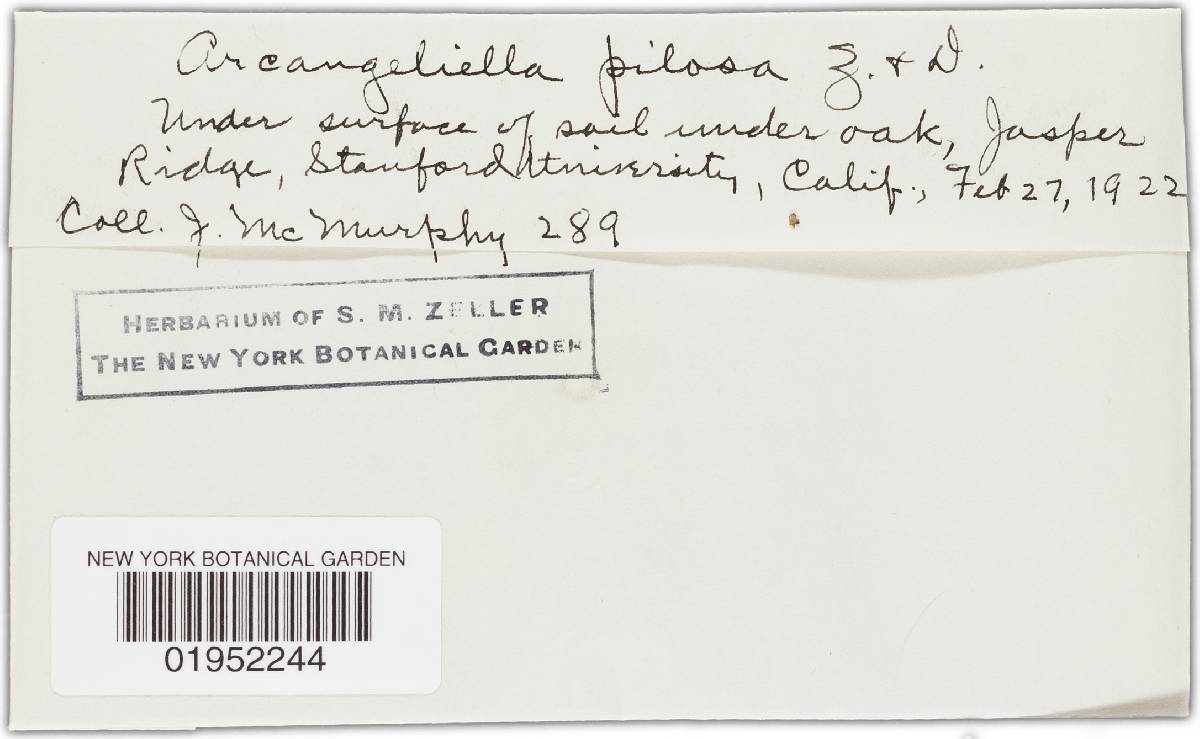 Arcangeliella pilosa Z. & D.
Under surface of soil under oak, Jasper
Ridge, Stanford University, Calif., Feb 27, 1922
Coll. J. McMurphy 289
HERBARIUM OF S. M. ZELLER
THE NEW YORK BOTANICAL GARDEN
NEW YORK BOTANICAL GARDEN
01952244